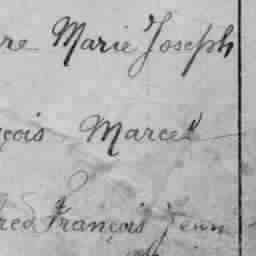 re Marie Joseph
çois Marcel
red François Jean